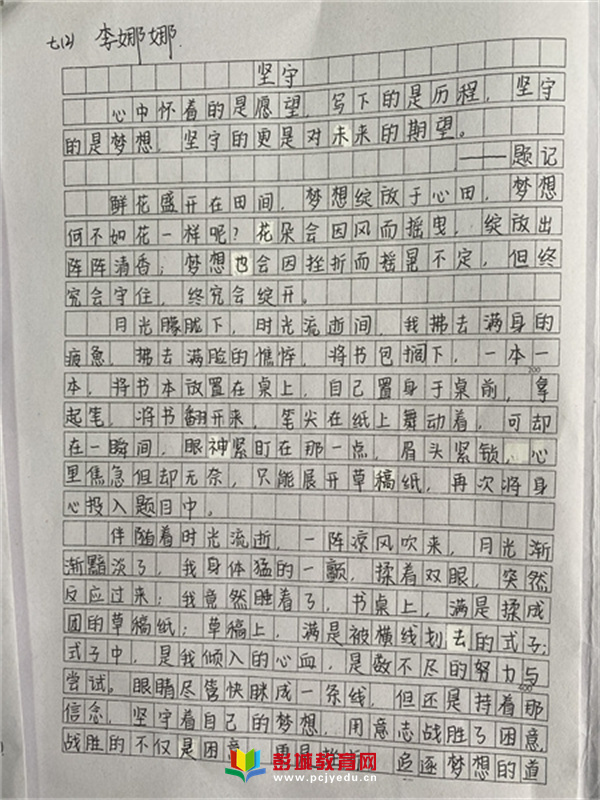 七(2) 李娜娜
坚守
心中怀着的是愿望，写下的是历程，坚守
的是梦想，坚守的更是对未来的期望。
——题记
鲜花盛开在田间，梦想绽放于心田，梦想
何不如花一样呢？花朵会因风而摇曳，绽放出
阵阵清香；梦想也会因挫折而摇晃不定，但终
究会守住，终究会绽开。
月光朦胧下，时光流逝间，我拂去满身的
疲惫，拂去满脸的憔悴，将书包搁下，一本一
本，将书本放置在桌上，自己置身于桌前，拿
200
起笔，将书翻开来，笔尖在纸上舞动着，可却
在一瞬间，眼神紧盯在那一点，眉头紧锁，心
里焦急但却无奈，只能展开草稿纸，再次将身
心投入题目中。
伴随着时光流逝，一阵凉风吹来，月光渐
渐黯淡了，我身体猛的一颤，揉着双眼，突然
反应过来；我竟然睡着了，书桌上，满是揉成
团的草稿纸；草稿上，满是被横线划去的式子；
式子中，是我倾入的心血，是数不尽的努力与
尝试。眼睛尽管快眯成一条线，但还是持着那
400
信念，坚守着自己的梦想，用意志战胜了困意，
战胜的不仅是困意，更是挫折，追逐梦想的道
彭城教育网
www.pcjyedu.cn